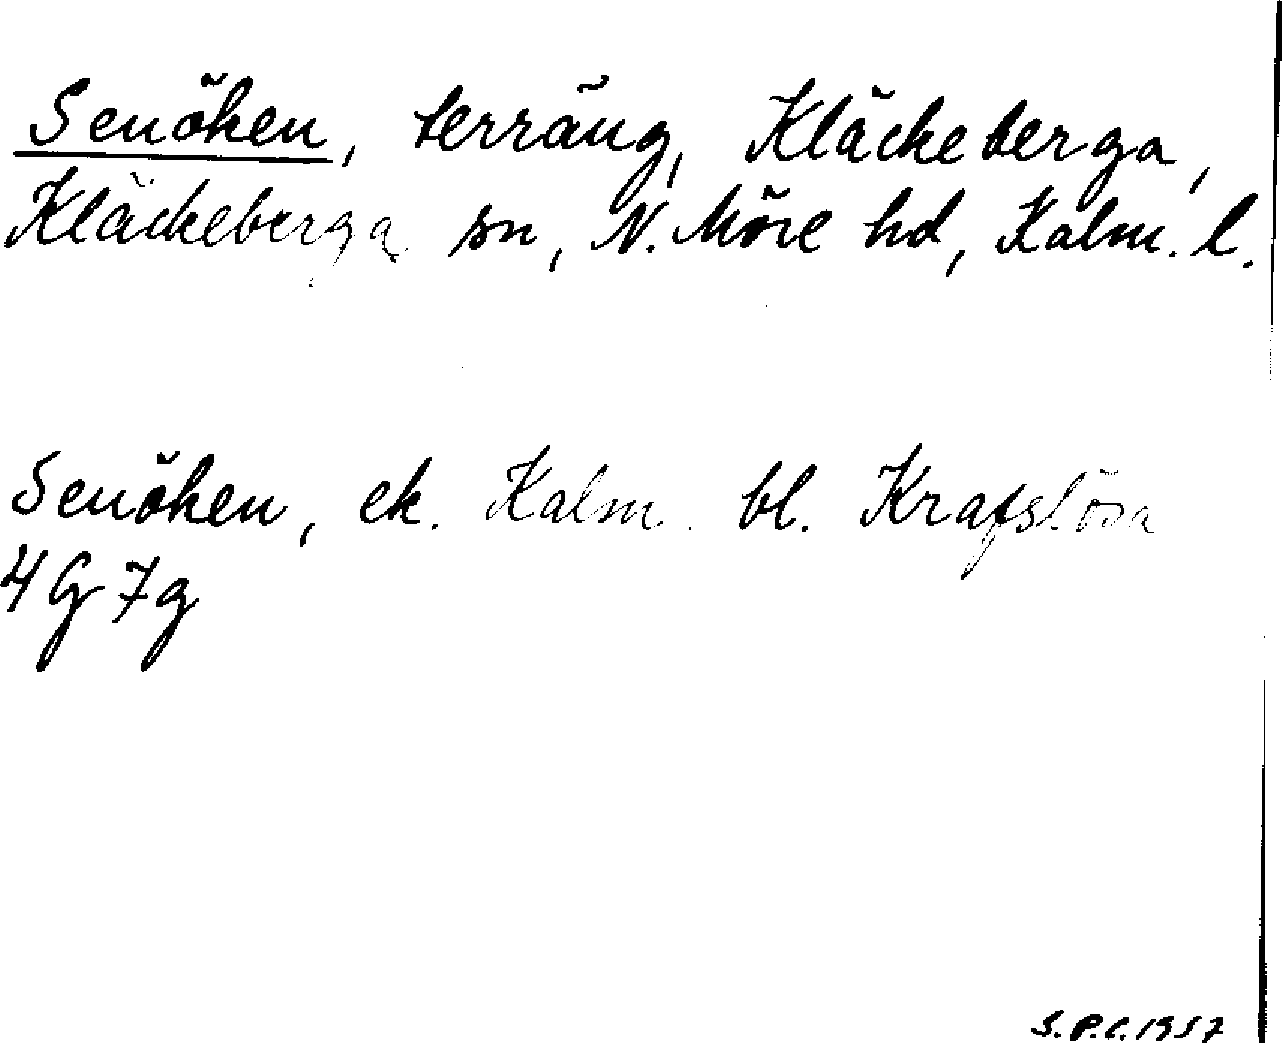 Senöken, terräng, Kläckeberga,
Kläckeberga sn, N. Möre hd, Kalm. l.
Senöken, ek. Kalm. bl. Krafslösa
4G7g
S.P.C.1957